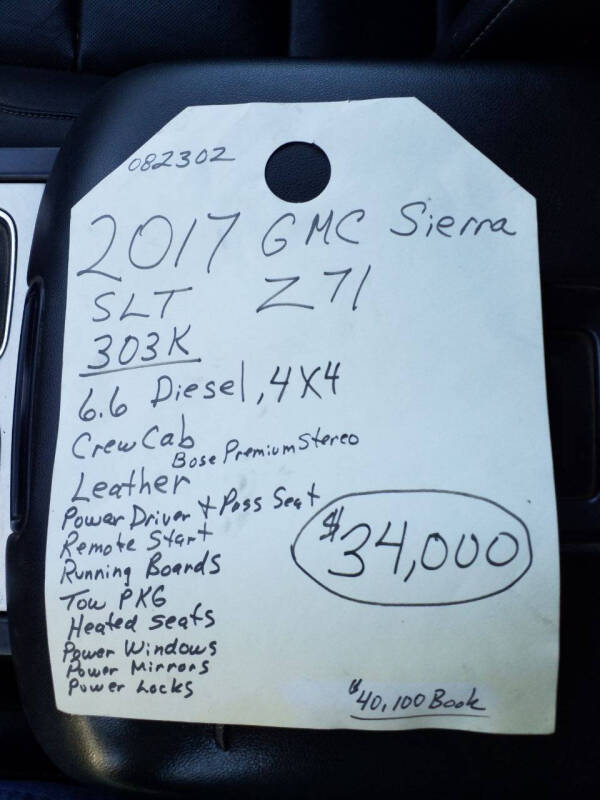 082302
2017 GMC Sierra
SLT Z71
303K
6.6 Diesel, 4X4
Crew Cab
Bose Premium Stereo
Leather
Power Driver + Pass Seat
Remote Start
$34,000
Running Boards
Tow PKG
Heated Seats
Power Windows
Power Mirrors
Power Locks
$40,100 Book